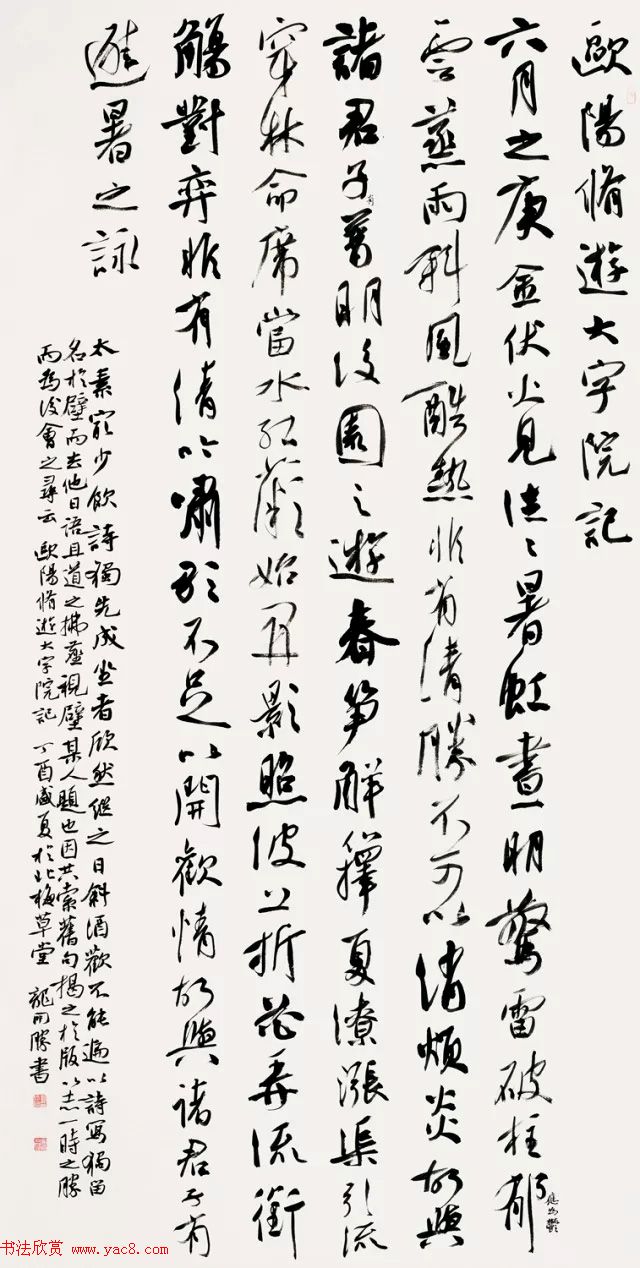 歐陽脩遊大字院記
六月之庚金伏火見往々暑虹晝明驚雷破柱郁
應為鬱
雲蒸雨斜風酷熱非有清勝不可以消煩炎故與
諸君子有普明後園之遊春筍解籜夏潦漲渠引流
穿林命席當水紅薇始開影照波上折花弄流銜
觴對弈非有清吟嘯歌不足以開歡情故與諸君子有
避暑之詠
太素最少飲詩獨先成坐者欣然繼之日斜酒歡不能遍以詩寫獨留
名於壁而去他日語且道之拂塵視壁某人題也因共索舊句揭之於版以志一時之勝
而為後會之尋云 歐陽脩遊大字院記 丁酉盛夏於北梅草堂 龍開勝書
书法欣赏 www.yac8.com